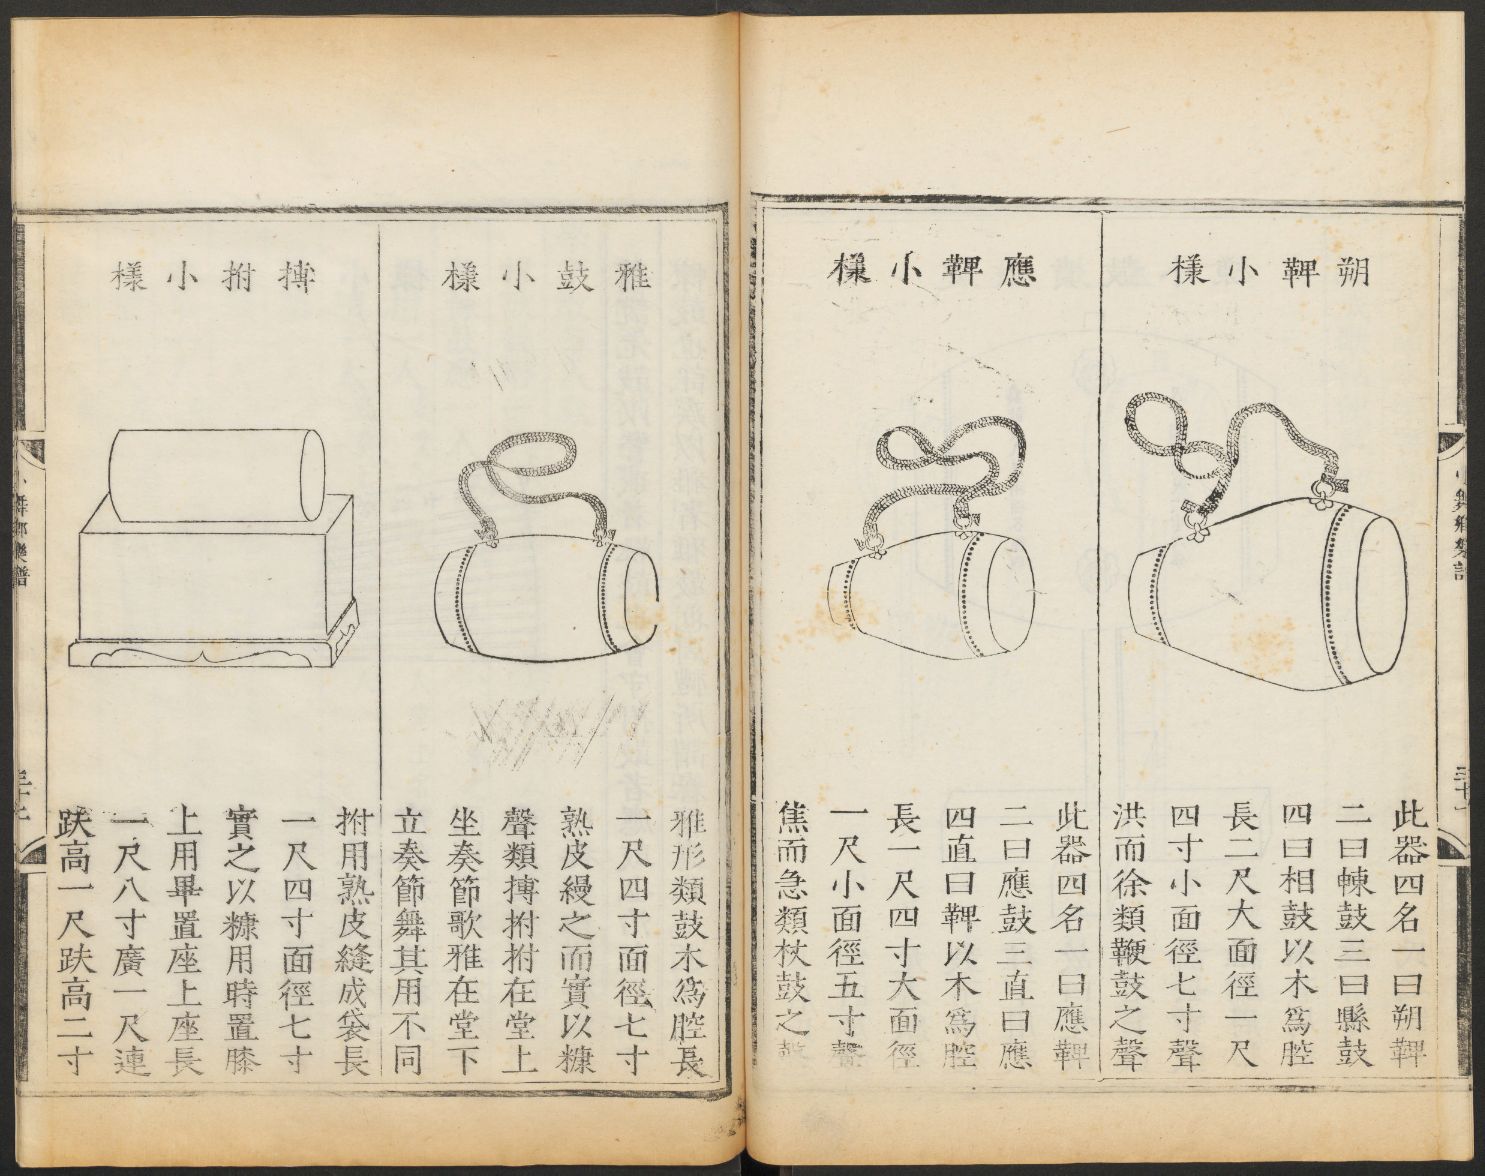 朔鞞小樣
此器四名一曰朔鞞
二曰朄鼓三曰縣鼓
四曰相鼓以木爲腔
長二尺大面徑一尺
四寸小面徑七寸聲
洪而徐類鞭鼓之聲
應鞞小樣
此器四名一曰應鞞
二曰應鼓三直曰應
四直曰鞞以木爲腔
長一尺四寸大面徑
一尺小面徑五寸聲
焦而急類杖鼓之聲
雅鼓小樣
雅形類鼓木爲腔長
一尺四寸面徑七寸
熟皮縵之而實以糠
聲類搏拊拊在堂上
坐奏節歌雅在堂下
立奏節舞其用不同
搏拊小樣
拊用熟皮縫成袋長
一尺四寸面徑七寸
實之以糠用時置膝
上用畢置座上座長
一尺八寸廣一尺連
趺高一尺趺高二寸
小舞鄉樂譜